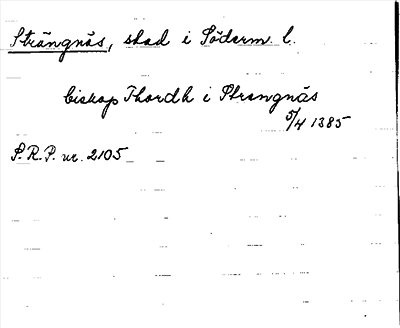 Strängnäs, stad i Söderm. l.
biskop Thordh i Strangnäs
5/4 1385
S.R.P. nr. 2105